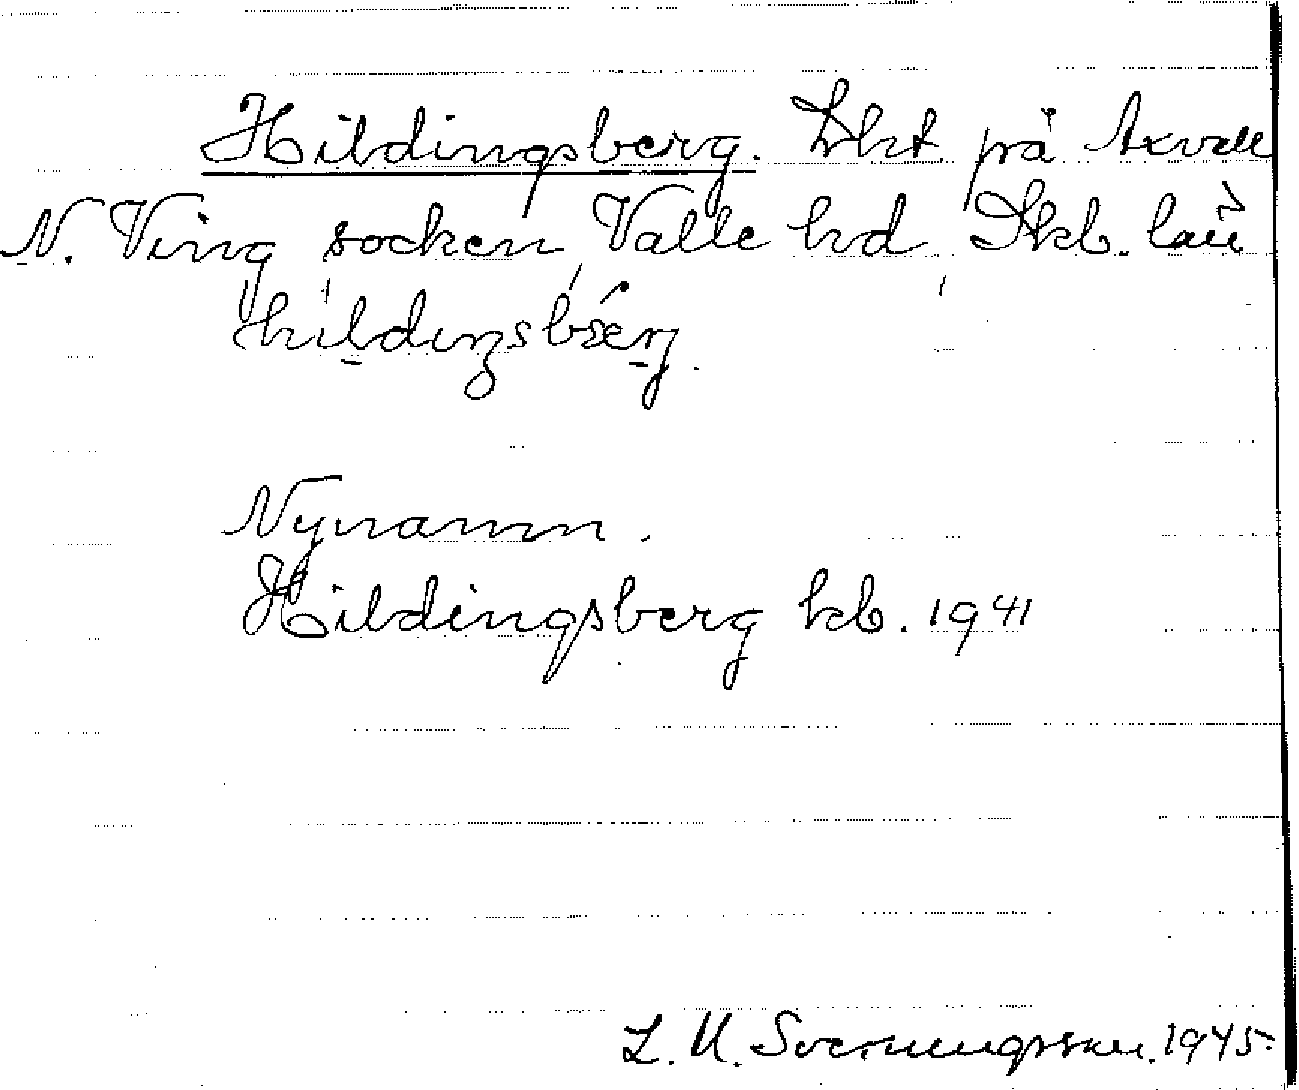 Hildingsberg. Lht på Axvall
N. Ving socken, Valle hd, Skb. län
Nynamn.
Hildingsberg kb. 1941
L. U. Svenungsson. 1945.